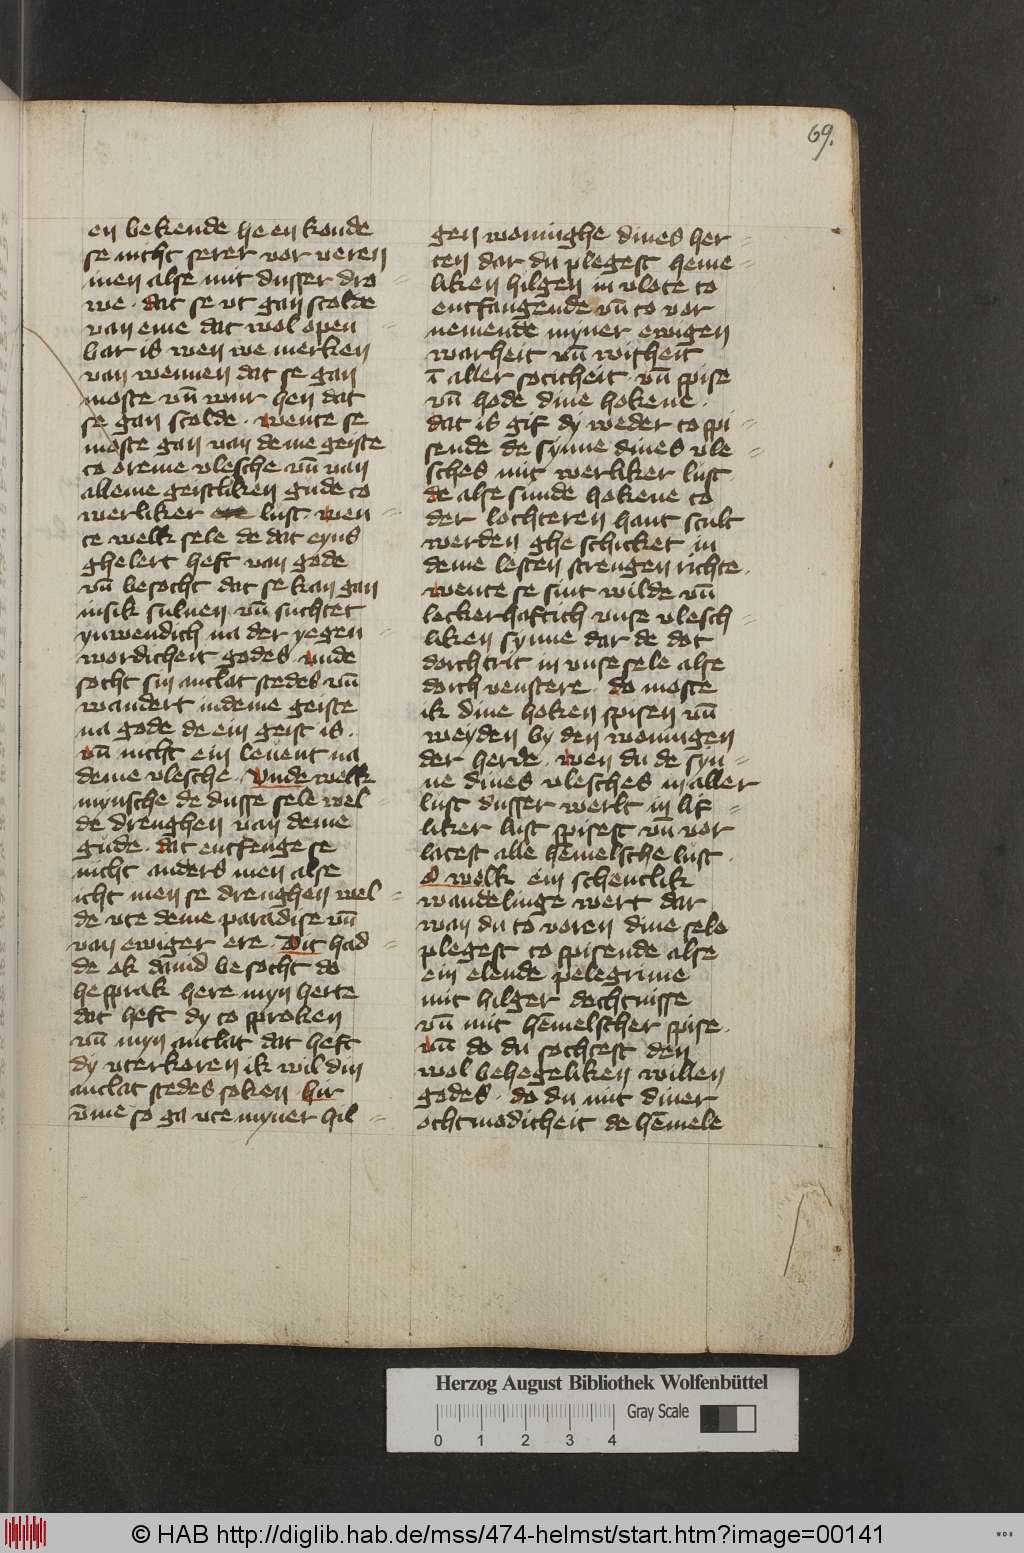 69.
en bekende he en konde
se nicht serer vor veren
men alse mit dusser dro
we · dat se vt gan scolde
van eme dat wol open
bar is wen we merken
van wennen dat se gan
moste vn̄ wur hen dat
se gan scolde · wente se
moste gan van deme geiste
to oreme vlesche vn̄ van
alleme geistliken gude to
werliker lust · wen
te welk sele de dat eyns
ghelert heft van gode
vn̄ besocht dat se kan gan
insik suluen vn̄ suchtet
ynwendich na der yegen
wordicheit godes · vnde
socht sin antlat stedes vn̄
wandert indeme geiste
na gode de ein geist is ·
vn̄ nicht ein leuent na
deme vlesche · Vnde welk
mynsche de dusse sele wel
de drenghen van deme
gude · dat entfenge se
nicht anders men alse
icht men se drenghen wel
de vte deme paradise vn̄
van ewiger ere · Dit had
de ok dauid besocht do
he sprak here myn herte
dat heft dy to sproken
vn̄ myn antlat dat heft
dy vterkoren ik wil din
antlat stedes soken · hir
v̄me so ga vte myner hil
gen woninghe dines her
ten dar du plegest heme
liken hilgen in vlote to
entfangende vn̄ to vor
nemende myner ewigen
warheit vn̄ witheit
ī aller soticheit · vn̄ spise
vn̄ hode dine hokene ·
dat is gif dy weder to spi
sende de synne dines vle
sches mit werliker lust
de alse sunde hokene to
der lochteren hant scult
werden gheschicket in
deme lesten strengen richte ·
wente se sint wilde vn̄
leckerhaftich vnse vlesch
liken synne dar de dot
dorchtrit in vnse sele alse
dorch venstere · do moste
ik dine hoken spisen vn̄
weyden by den woningen
der herde · wen du de syn
ne dines vlesches in aller
lust dusser werlt in lif
liker lust spisest vn̄ vor
latest alle hēmelsche lust ·
O welk ein schentlik
wandelinge wert dar
wan du to voren dine sele
plegest to spisende alse
ein elende pelegrime
mit hilger dochtnisse
vn̄ mit hēmelscher spise ·
vn̄ do du sochtest den
wol behegeliken willen
godes · do du mit diner
othmodicheit de hēmele
Herzog August Bibliothek Wolfenbüttel
Gray Scale
0 1 2 3 4
© HAB http://diglib.hab.de/mss/474-helmst/start.htm?image=00141